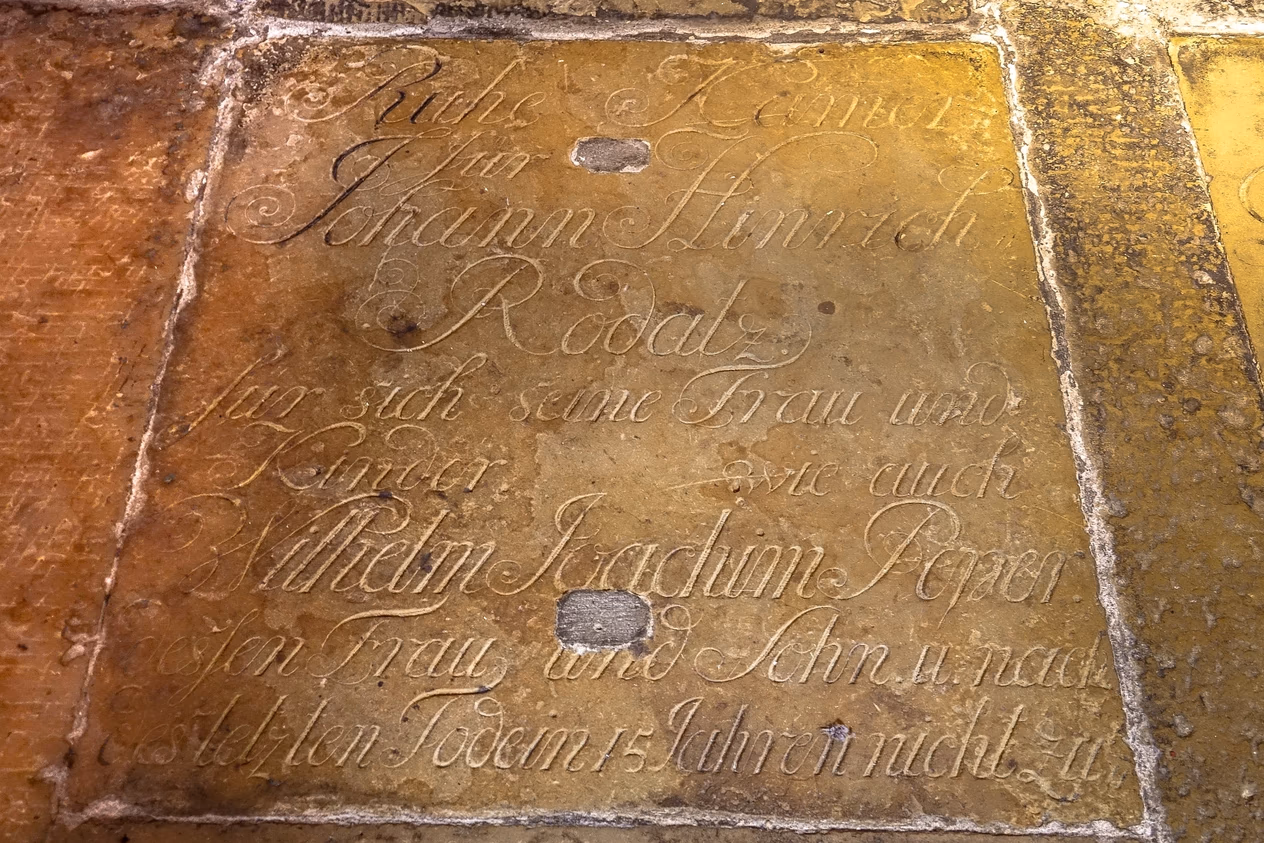 Ruhe Kamer
fur
Johann Hinrich
Rodatz
fur sich seine Frau und
Kinder wie auch
Wilhelm Joachim Peper
deßen Frau und Sohn. u. nach
des letzten Tode in 15 Jahren nicht zu